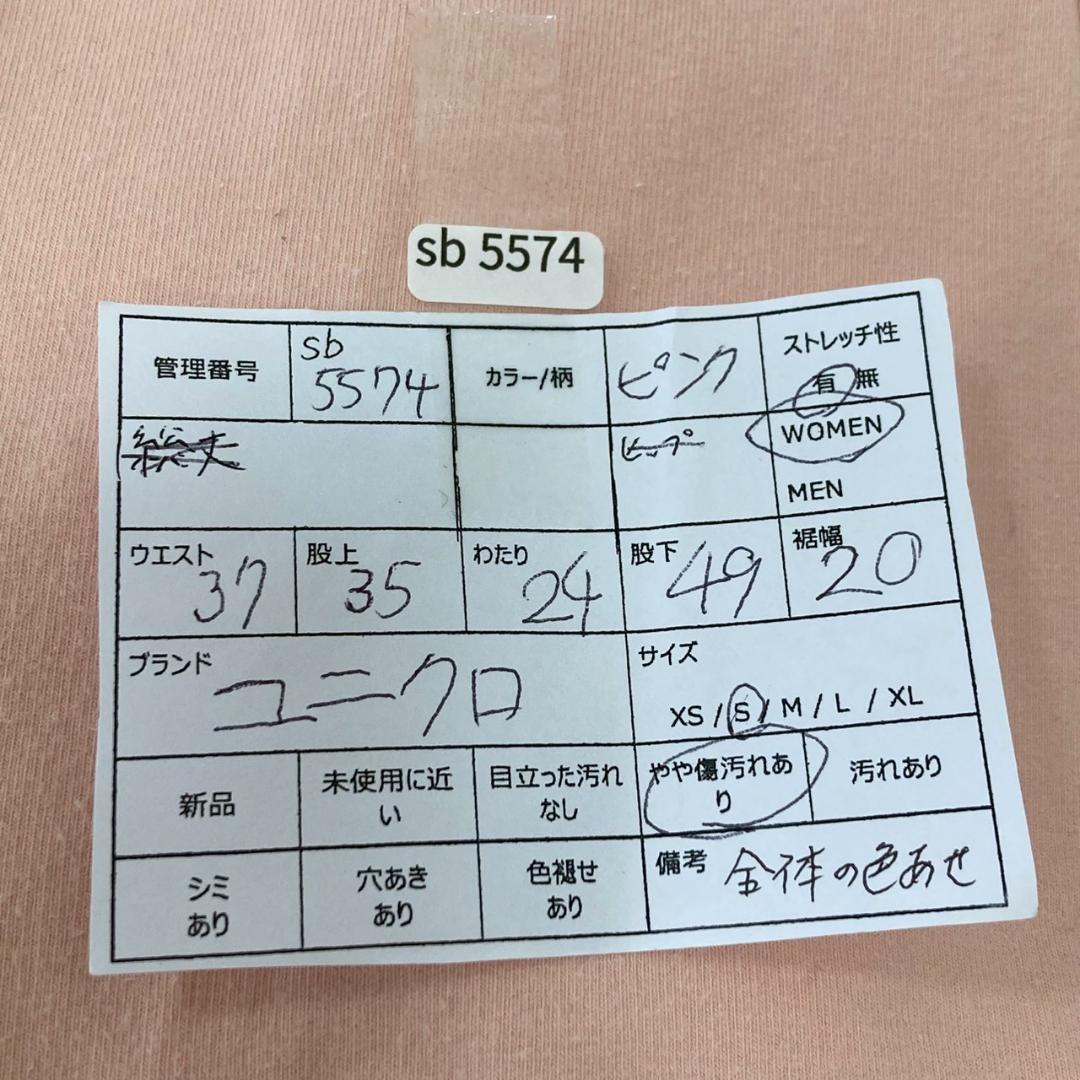 sb 5574
管理番号
sb
5574
カラー/柄
ピンク
ストレッチ性
有 無
総丈
ヒップ
WOMEN
MEN
ウエスト
37
股上
35
わたり
24
股下
49
裾幅
20
ブランド
ユニクロ
サイズ
XS / S / M / L / XL
新品
未使用に近
い
目立った汚れ
なし
やや傷汚れあ
り
汚れあり
シミ
あり
穴あき
あり
色褪せ
あり
備考 全体の色あせ